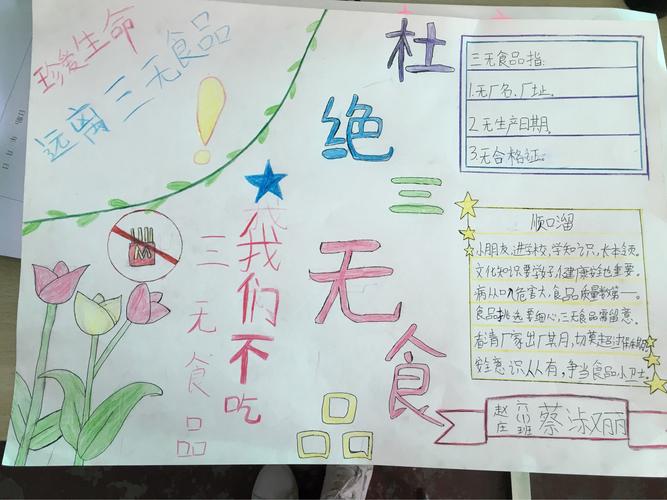 珍爱生命
远离三无食品
!
杜绝三无食品
三无食品指:
1.无厂名、厂址.
2.无生产日期.
3.无合格证.
我们不吃
三无食品
顺口溜
小朋友,进学校,学知识,长本领.
文化知识要学好,健康安全也重要.
病从口入危害大,食品质量数第一.
食品挑选要细心,三无食品需留意.
看清厂家出厂其月,切莫超过保未期
安全意识人人有,争当食品小卫士.
赵庄
六(1)班
蔡淑丽